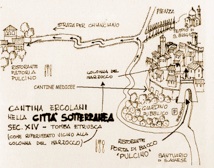 STRADA PER CHIANCIANO
PIENZA
S. BIAGIO
RISTORANTE
FATTORIA
PULCINO
COLONNA DEL
MARZOCCO
CANTINE MEDICEE
CANTINA ERCOLANI
NELLA CITTÀ SOTTERRANEA
SEC. XIV - TOMBA ETRUSCA
(COME RIFERIMENTO VICINO ALLA
COLONNA DEL MARZOCCO)
GIARDINO
DI
RISTORANTE
PORTA DI BACCO
"PULCINO"
SANTUARIO
DI S. AGNESE